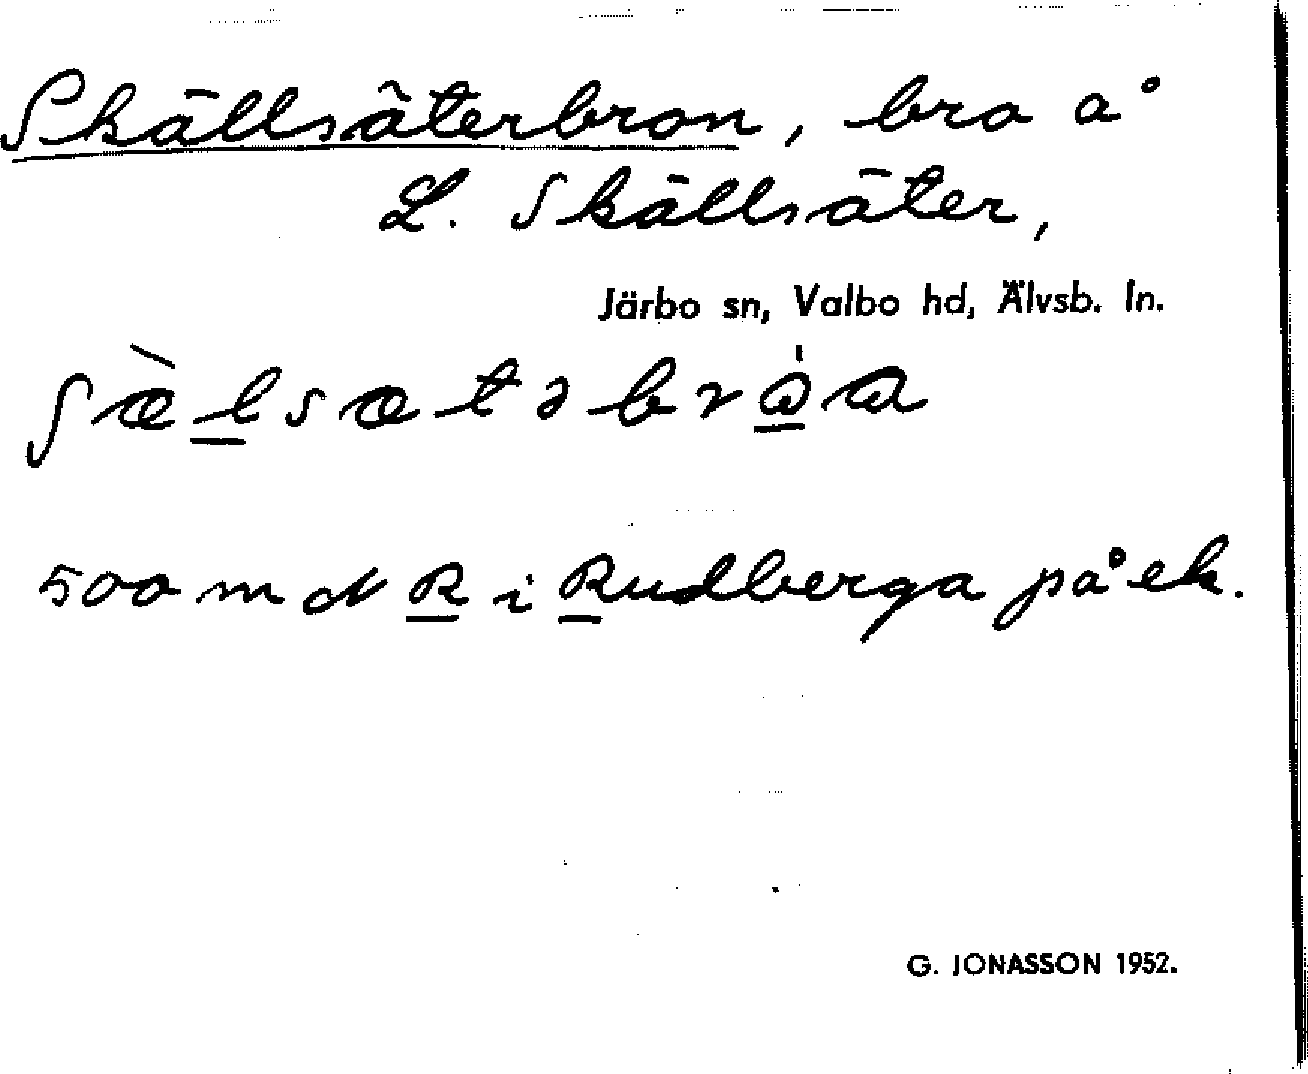 Skällsäterbron, bro å
L. Skällsäter,
Järbo sn, Valbo hd, Älvsb. ln.
ʃæ̀l̲sætəbrɷ̲́a
500 m N R i Rudberga på ek.
G. JONASSON 1952.